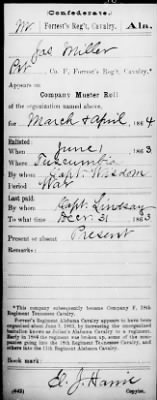 Confederate.
M Forrest's Reg't, Cavalry. Ala.
Jas Miller
Pvt, Co. F, Forrest's Reg't, Cavalry.*
Appears on
Company Muster Roll
of the organization named above,
for March & April, 1864
Enlisted:
When June 1, 1863
Where Tuscumbia
By whom Capt. Wisdom
Period War
Last paid:
By whom Capt. Lindsay
To what time Dec. 31, 1863
Present or absent Present
Remarks:
*This company subsequently became Company F, 18th
Regiment Tennessee Cavalry.
Forrest's Regiment Alabama Cavalry appears to have been
organized about June 1, 1863, by increasing the unorganized
battalion known as Julian's Alabama Cavalry to a regiment.
Early in 1864 the regiment was broken up, some of the com-
panies going into the 18th Regiment Tennessee Cavalry, and
others into the 11th Regiment Alabama Cavalry.
Book mark:
(642)
Copyist.